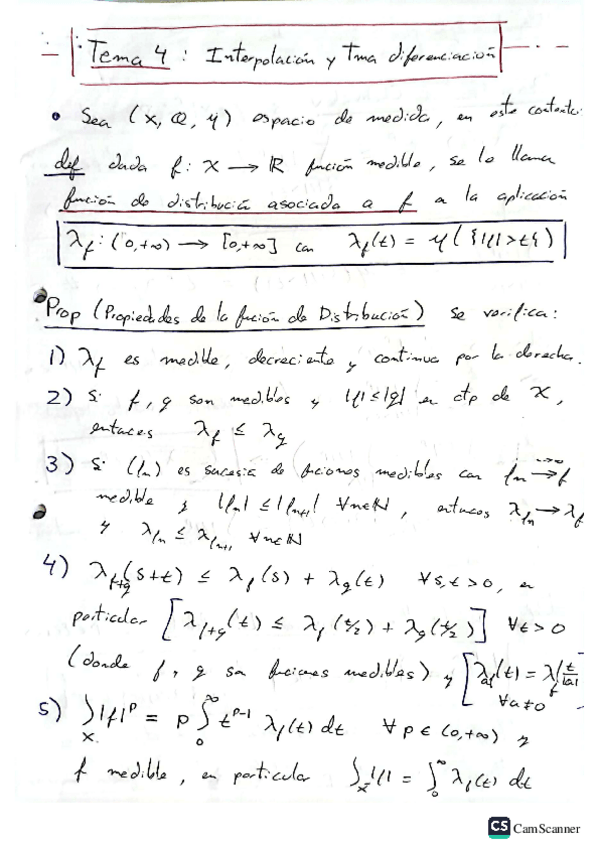 Tema 4 : Interpolación y Tma diferenciación
• Sea (X, a, μ) espacio de medida, en este contexto
def dada f: X → ℝ función medible, se lo llama
función de distribución asociada a f a la aplicación
λ_f : (0,+∞) → [0,+∞] con λ_f(t) = μ({|f|>t})
Prop (Propiedades de la función de Distribución) Se verifica:
1) λ_f es medible, decreciente y continua por la derecha.
2) Si f, g son medibles y |f|≤|g| en ctp de X,
entonces λ_f ≤ λ_g
3) Si (f_n) es sucesión de funciones medibles con f_n → f
medible y |f_n| ≤ |f_{n+1}| ∀n∈ℕ, entonces λ_{f_n} → λ_f
y λ_{f_n} ≤ λ_{f_{n+1}} ∀n∈ℕ
4) λ_{f+g}(s+t) ≤ λ_f(s) + λ_g(t) ∀s,t>0, en
particular [λ_{f+g}(t) ≤ λ_f(t/2) + λ_g(t/2)] ∀t>0
(donde f, g son funciones medibles) y [λ_{af}(t) = λ_f(t/|a|)
∀a≠0
5) ∫_X |f|^p = p ∫_0^∞ t^{p-1} λ_f(t) dt ∀p∈(0,+∞) y
f medible, en particular ∫_X |f| = ∫_0^∞ λ_f(t) dt
CS CamScanner